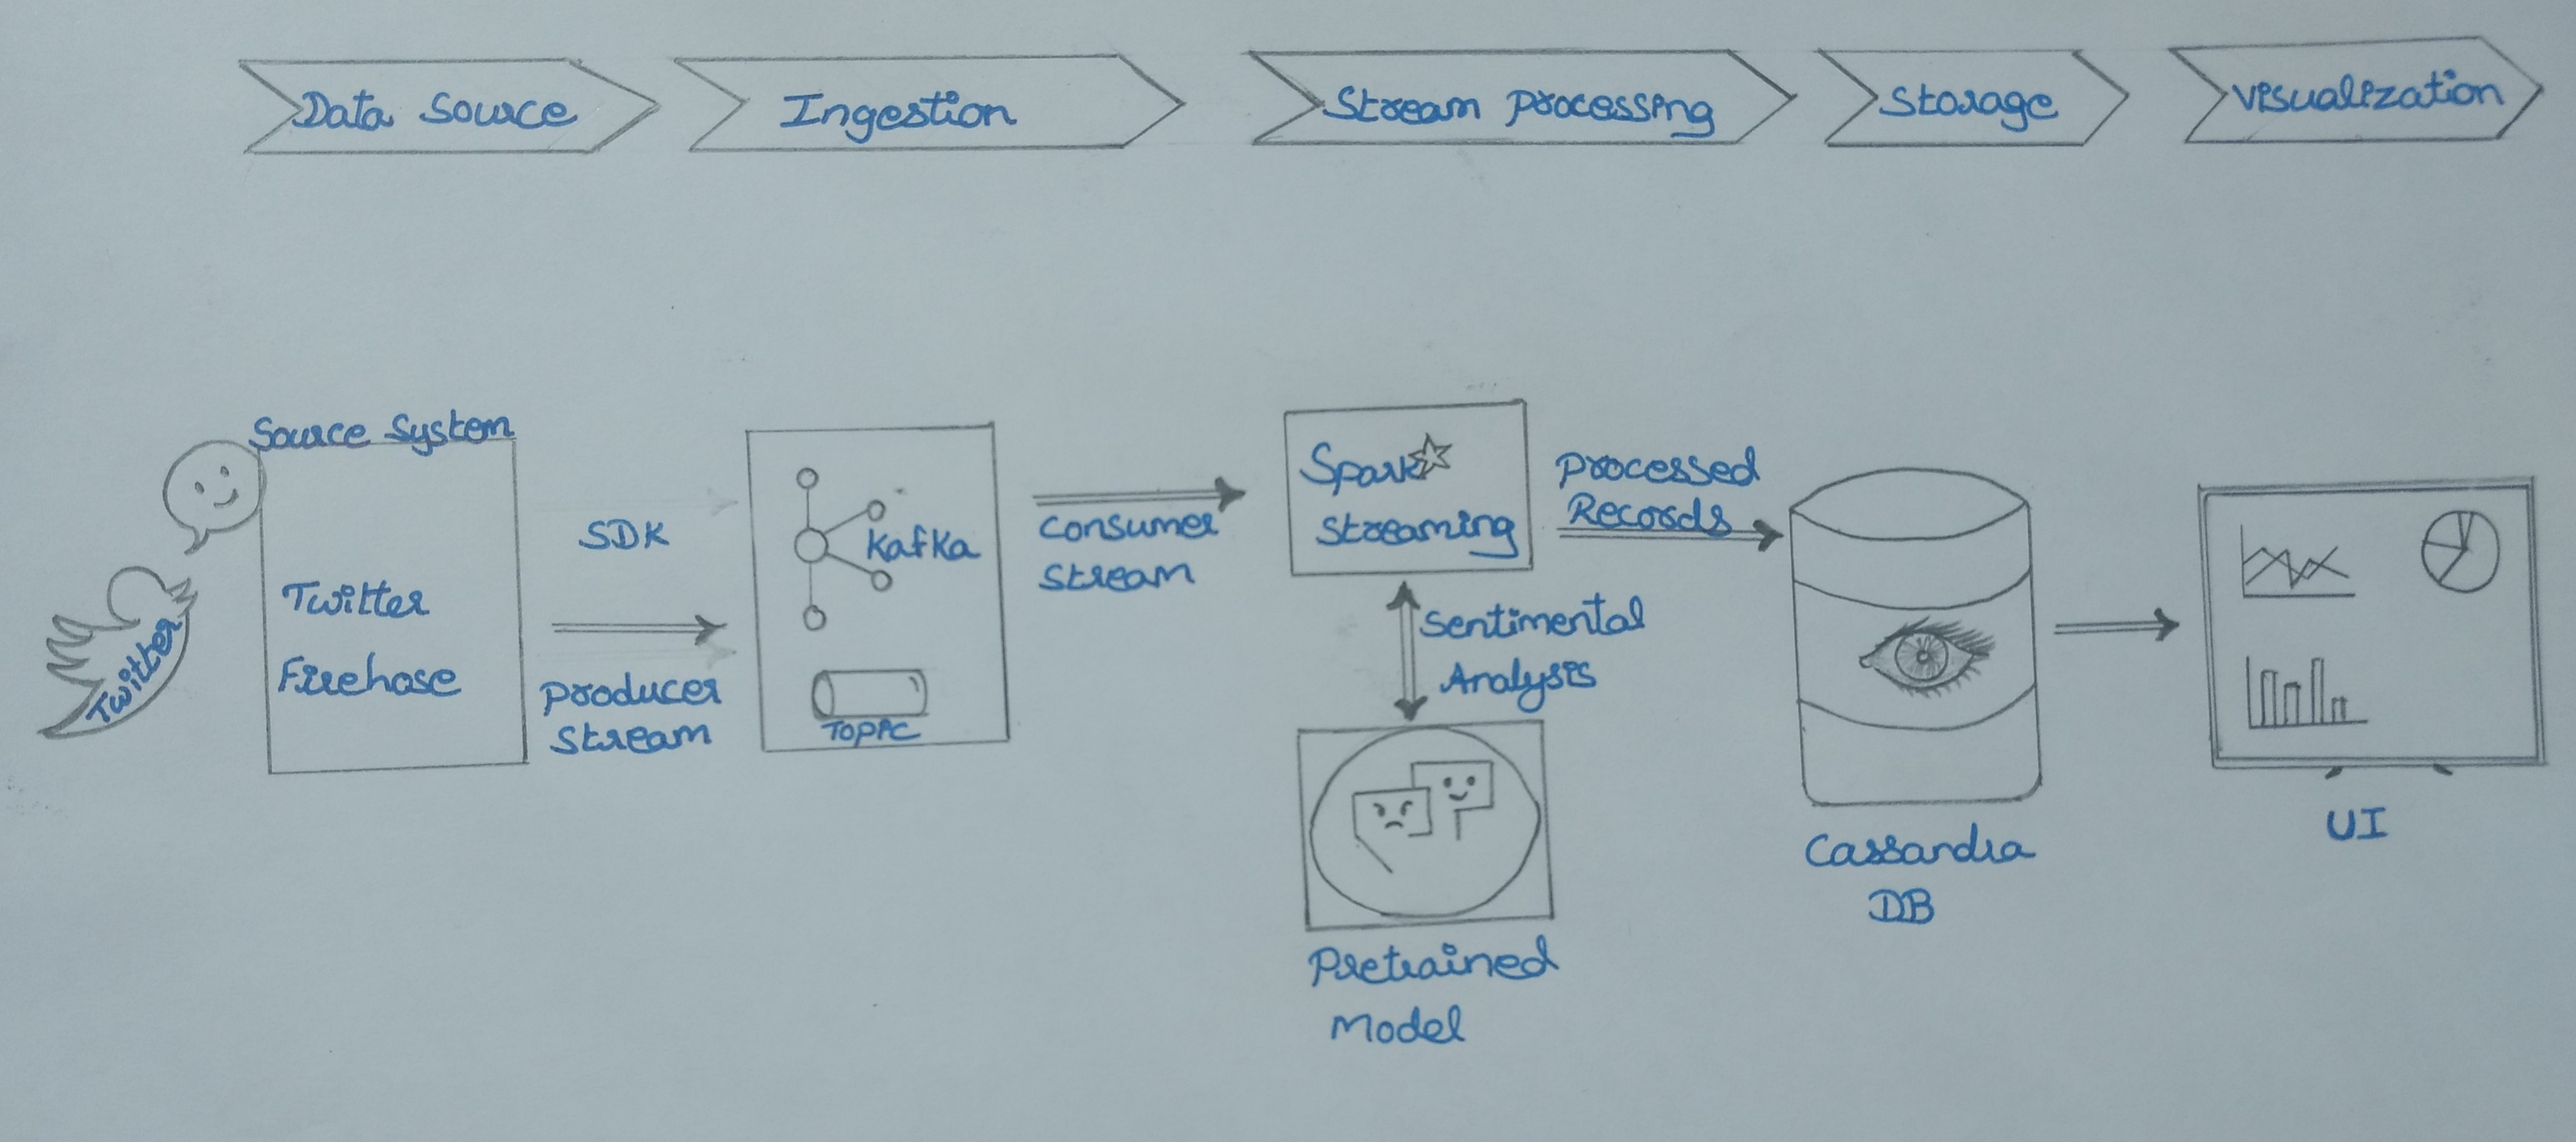 Data Source
Ingestion
Stream Processing
Storage
Visualization
Source System
Twitter
Twitter
Firehose
SDK
Producer
Stream
Kafka
Topic
Consumer
Stream
Spark
Streaming
Processed
Records
Sentimental
Analysis
Pretrained
Model
Cassandra
DB
UI